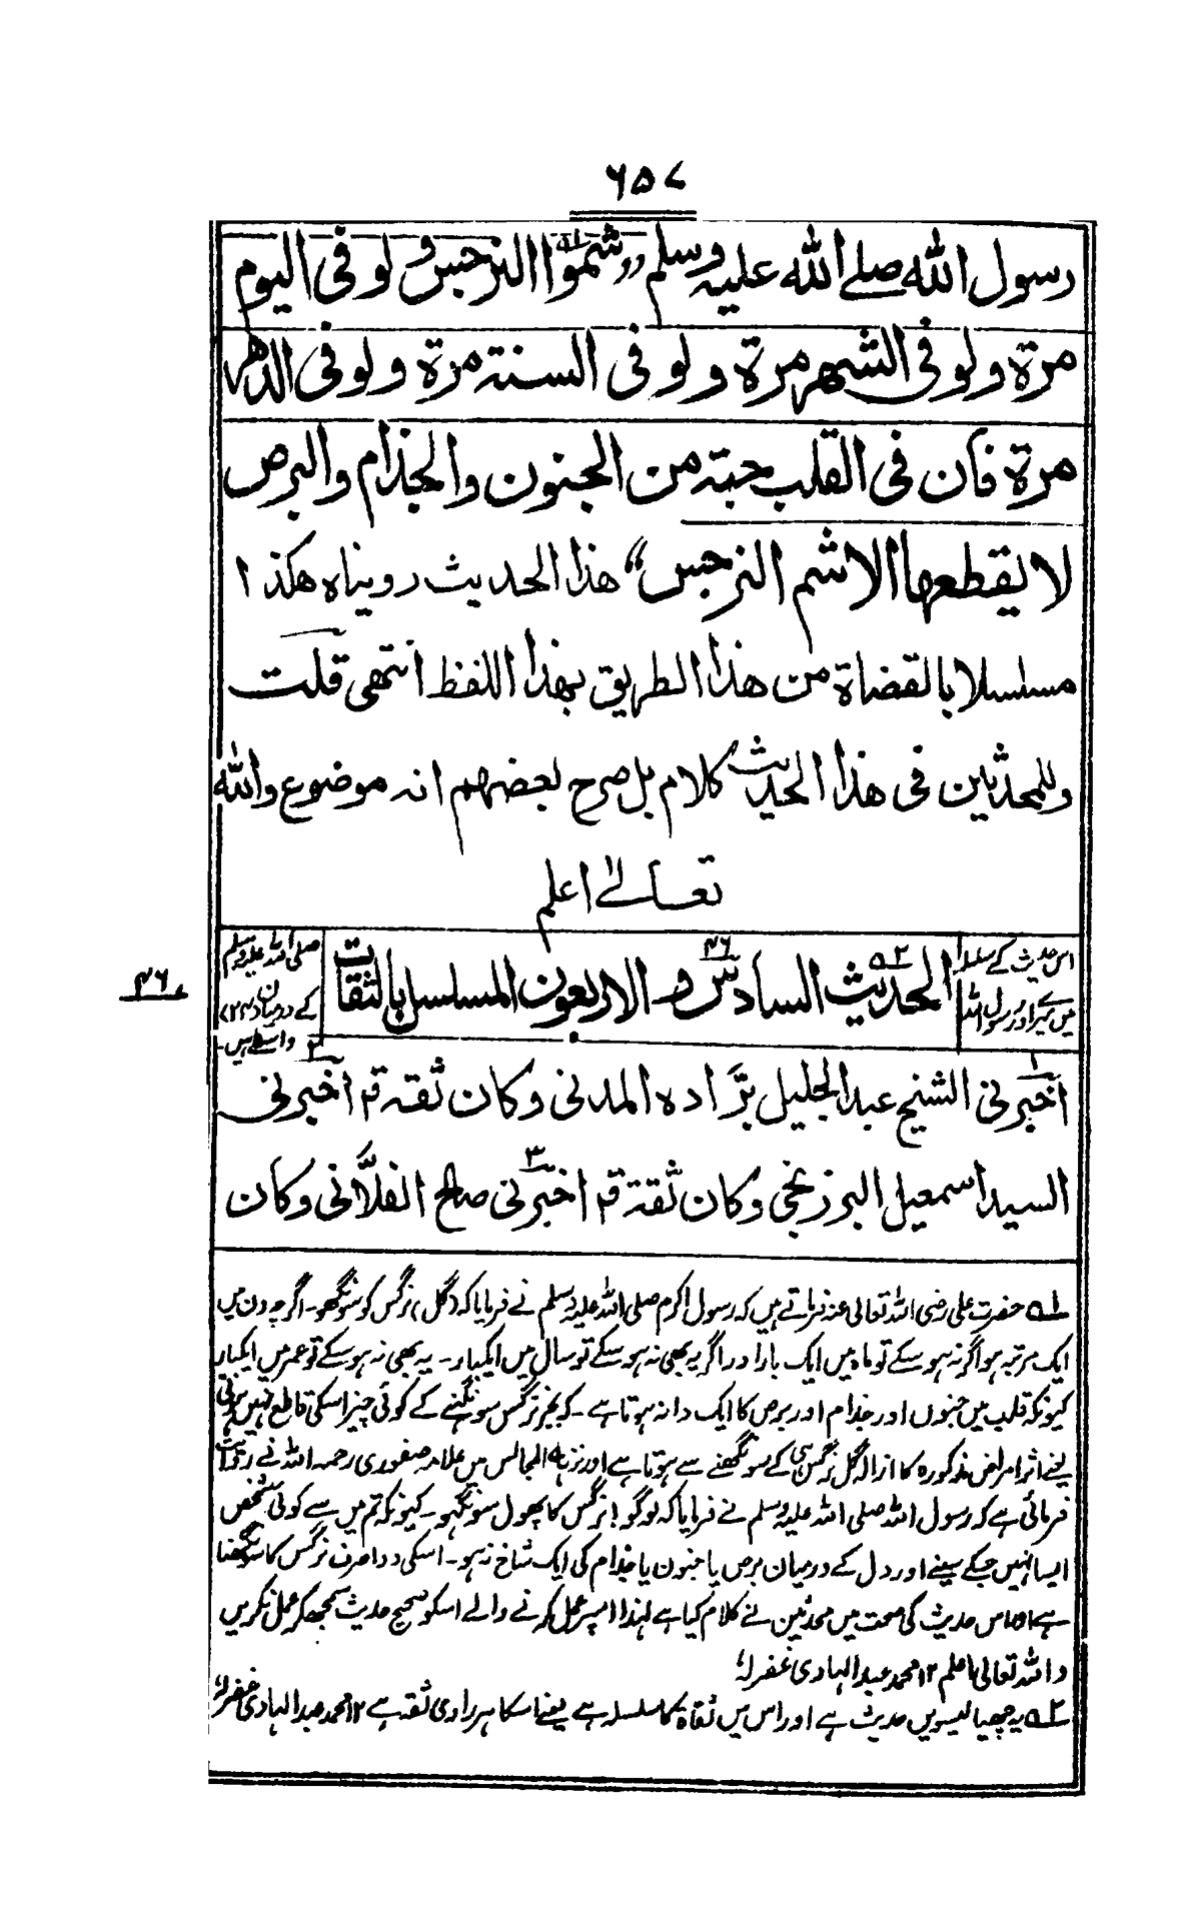 ٦٥٧
رسول الله صلے الله عليه وسلم ,,شموا النرجس ولو فى اليوم
مرة ولو فى الشهر مرة ولو فى السنة مرة ولو فى الدهر
مرة فان فى القلب حبة من الجنون والجذام والبرص
لا يقطعها الا شم النرجس“ هذا الحديث رويناه هكذا
مسلسلا بالقضاة من هذا الطريق بهذا اللفظ انتهى قلت
وللمحدثين فى هذا الحديث كلام بل صرح بعضهم انه موضوع والله
تعالےٰ اعلم
اس حدیث کے سلسلہ
میں میرے اور رسول اللہ
الحديث السادس و الاربعون المسلسل بالثقات
۴۶
صلی اللہ علیہ وسلم
کے درمیان (۲۲)
واسطے ہیں۔
۴۶
اخبرنى الشيخ عبد الجليل برّاده المدنى وكان ثقة قم اخبرنى
السيد اسمعيل البرزنجى وكان ثقة قم اخبرنى صالح الفلّانى وكان
لہ ۱ حضرت علی رضی اللہ تعالی عنہ فرماتے ہیں کہ رسول اکرم صلی اللہ علیہ وسلم نے فرمایا کہ (گل) نرگس کو سونگھو۔ اگرچہ دن میں
ایک مرتبہ ہو اگر نہ ہو سکے تو ماہ میں ایک بار اور اگر یہ بھی نہ ہو سکے تو سال میں ایکبار۔ یہ بھی نہ ہو سکے تو عمر میں ایکبار
کیونکہ قلب میں جنوں اور جذام اور برص کا ایک دانہ ہوتا ہے۔ کہ بجز نرگس سونگنے کے کوئی چیز اسکی قاطع نہیں ہوتی
یعنے اثر امراض مذکورہ کا ازالہ گل نرگس ہی کے سونگھنے سے ہوتا ہے اور نزہۃ المجالس میں علامہ صفوری رحمہ اللہ نے روایت
فرمائی ہے کہ رسول اللہ صلی اللہ علیہ وسلم نے فرمایا کہ لوگو! نرگس کا پھول سونگہو۔ کیونکہ تم میں سے کوئی شخص
ایسا نہیں جسکے سینے اور دل کے درمیان برص یا جنون یا جذام کی ایک شاخ نہ ہو۔ اسکی دوا صرف نرگس کا سونگھنا
ہے اھ اس حدیث کی صحت میں محدثین نے کلام کیا ہے لہذا امپر عمل کرنے والے اسکو صحیح حدیث سمجھکر عمل نکریں
واللہ تعالی اعلم ۱۲ محمد عبد الہادی غفرلہ
لہ ۲ یہ چھیالیسویں حدیث ہے اور اس میں ثقاۃ کا سلسلہ ہے یعنے اسکا ہر راوی ثقہ ہے ۱۲ محمد عبد الہادی غفرلہ